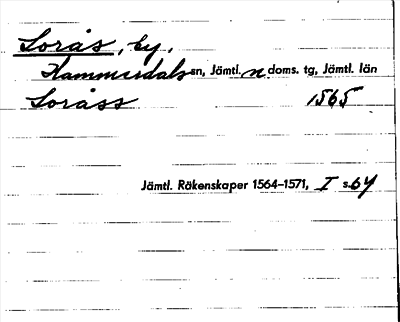 Sorås, by,
Hammerdals sn, Jämtl. n doms. tg, Jämtl. län
Soråss 1565
Jämtl. Räkenskaper 1564–1571, I s. 64